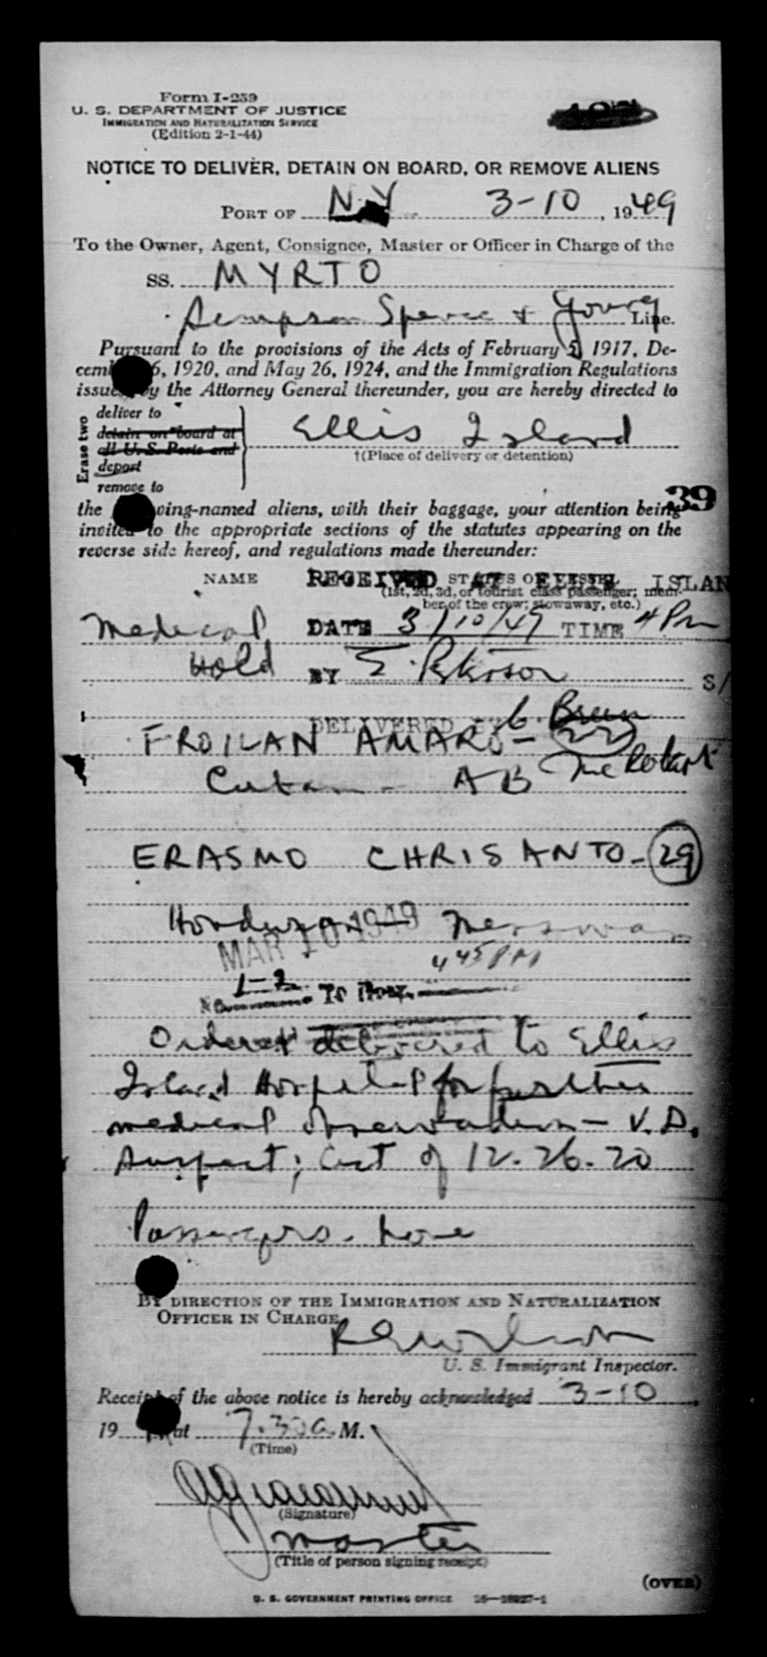 Form I-259
U. S. DEPARTMENT OF JUSTICE
IMMIGRATION AND NATURALIZATION SERVICE
(Edition 2-1-44)
NOTICE TO DELIVER, DETAIN ON BOARD, OR REMOVE ALIENS
PORT OF N.Y. 3-10, 1949
To the Owner, Agent, Consignee, Master or Officer in Charge of the
SS. MYRTO
Simpson Spence & Young Line.
Pursuant to the provisions of the Acts of February 5, 1917, De-
cem 6, 1920, and May 26, 1924, and the Immigration Regulations
issued by the Attorney General thereunder, you are hereby directed to
Erase two
deliver to
detain on board at
all U. S. Ports and
deport
remove to
Ellis Island
†(Place of delivery or detention)
39
the wing-named aliens, with their baggage, your attention being
invited to the appropriate sections of the statutes appearing on the
reverse side hereof, and regulations made thereunder:
NAME
RECEIVED AT ELLIS ISLAN
STATUS ON VESSEL
(1st, 2d, 3d, or tourist class passenger; mem-
ber of the crew; stowaway, etc.)
Medical DATE 3/10/49 TIME 4 Pm
Hold BY S/
DELIVERED
FROILAN AMARO - 22
Cuban - AB
ERASMO CHRISANTO - 29
Honduran - Messman
MAR 10 1949
445 PM
No. 1-2 To Hosp.
Ordered delivered to Ellis
Island Hospital for further
medical observation - V.D.
Suspect; Act of 12-26-20
Passengers - none
BY DIRECTION OF THE IMMIGRATION AND NATURALIZATION
OFFICER IN CHARGE
U. S. Immigrant Inspector.
Receipt of the above notice is hereby acknowledged 3-10,
19 at 7.30 a. M.
(Time)
(Signature)
Master
(Title of person signing receipt)
(OVER)
U. S. GOVERNMENT PRINTING OFFICE 16-18227-1